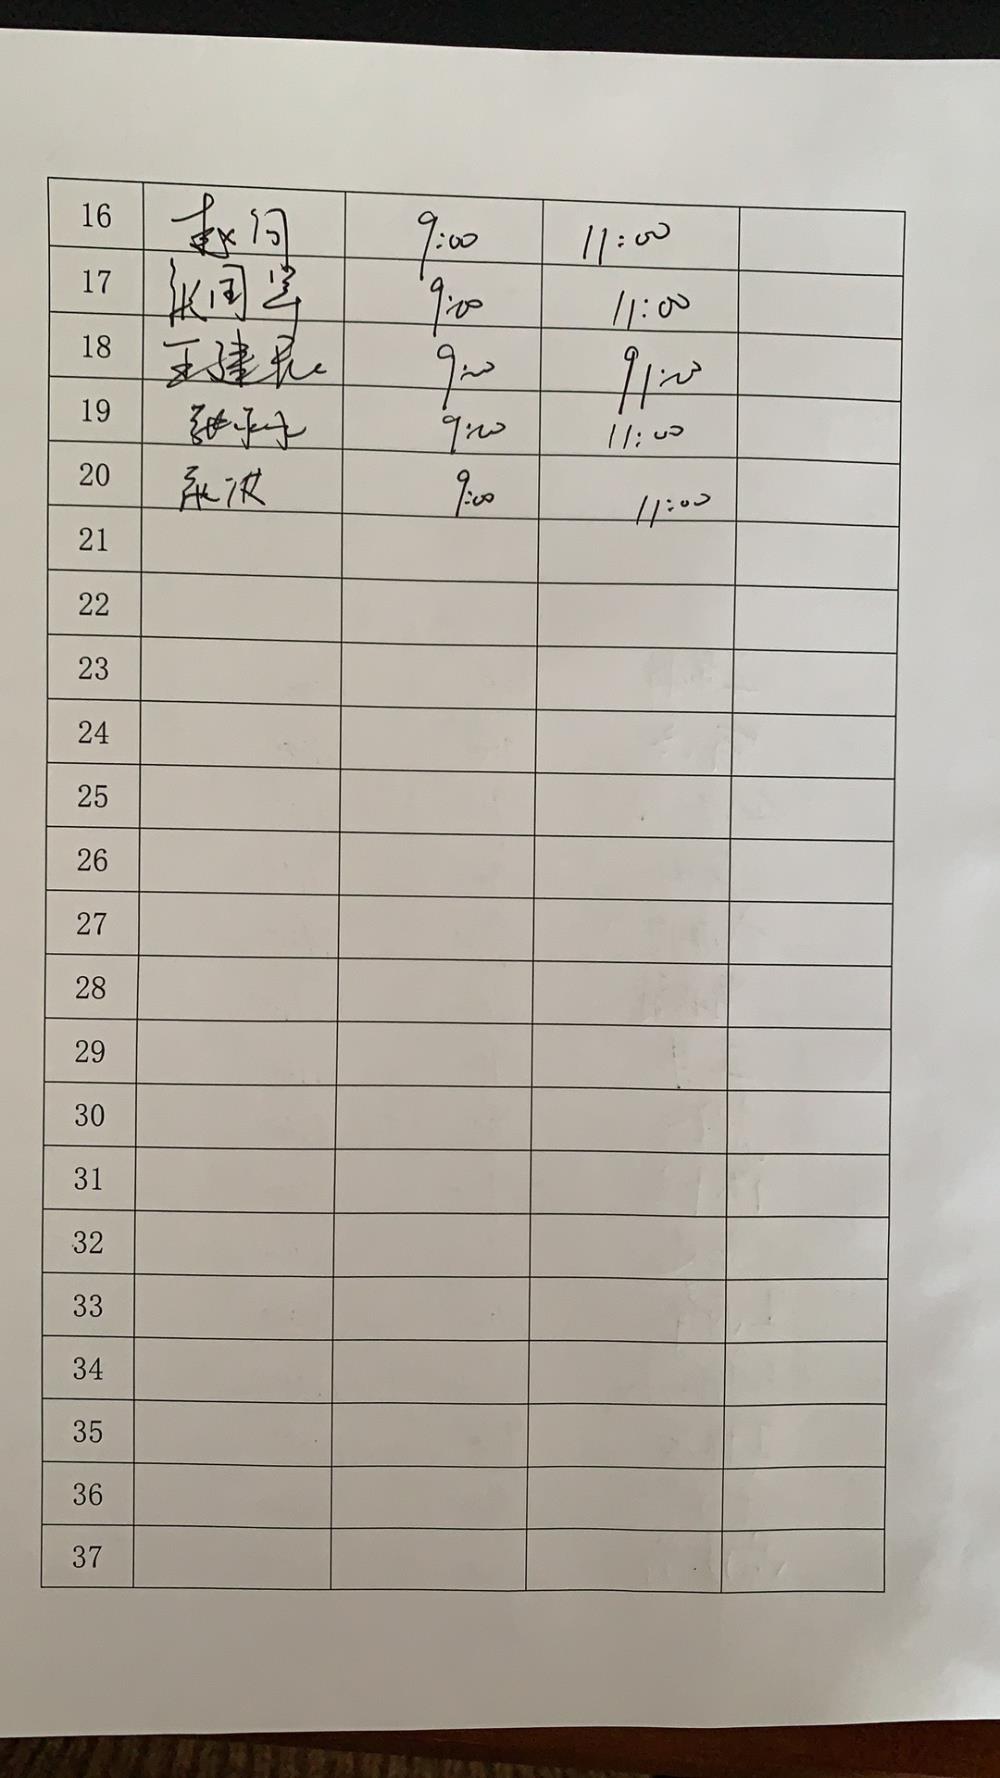 16 赵 9:00 11:00
17 张国 9:00 11:00
18 王建民 9:00 911:00
19 张 9:00 11:00
20 张波 9:00 11:00
21
22
23
24
25
26
27
28
29
30
31
32
33
34
35
36
37